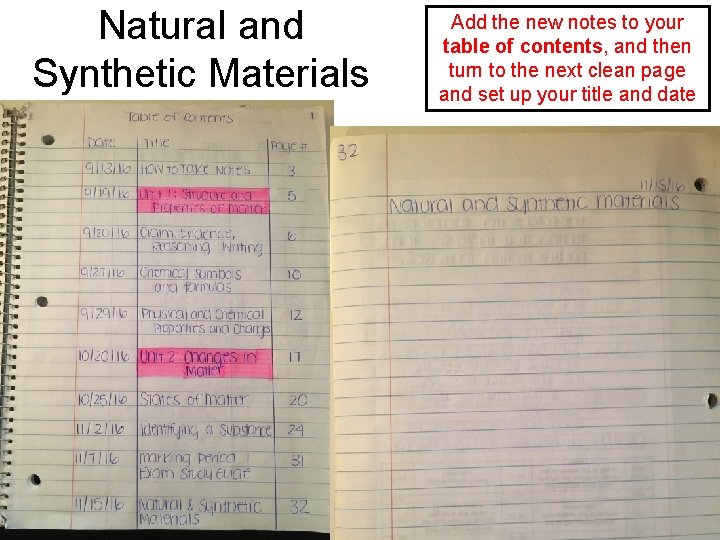 Natural and
Synthetic Materials
Add the new notes to your
table of contents, and then
turn to the next clean page
and set up your title and date
Table of Contents 1
Date Title Page #
9/13/16 How to Take Notes 3
9/19/16 Unit 1: Structure and 5
Properties of Matter
9/20/16 Claim, Evidence, 6
Reasoning Writing
9/27/16 Chemical Symbols 10
and Formulas
9/29/16 Physical and Chemical 12
Properties and Changes
10/20/16 Unit 2: Changes in 17
Matter
10/25/16 States of Matter 20
11/2/16 Identifying a Substance 24
11/7/16 Marking Period 1 31
Exam Study Guide
11/15/16 Natural & Synthetic 32
Materials
32
11/15/16
Natural and Synthetic Materials